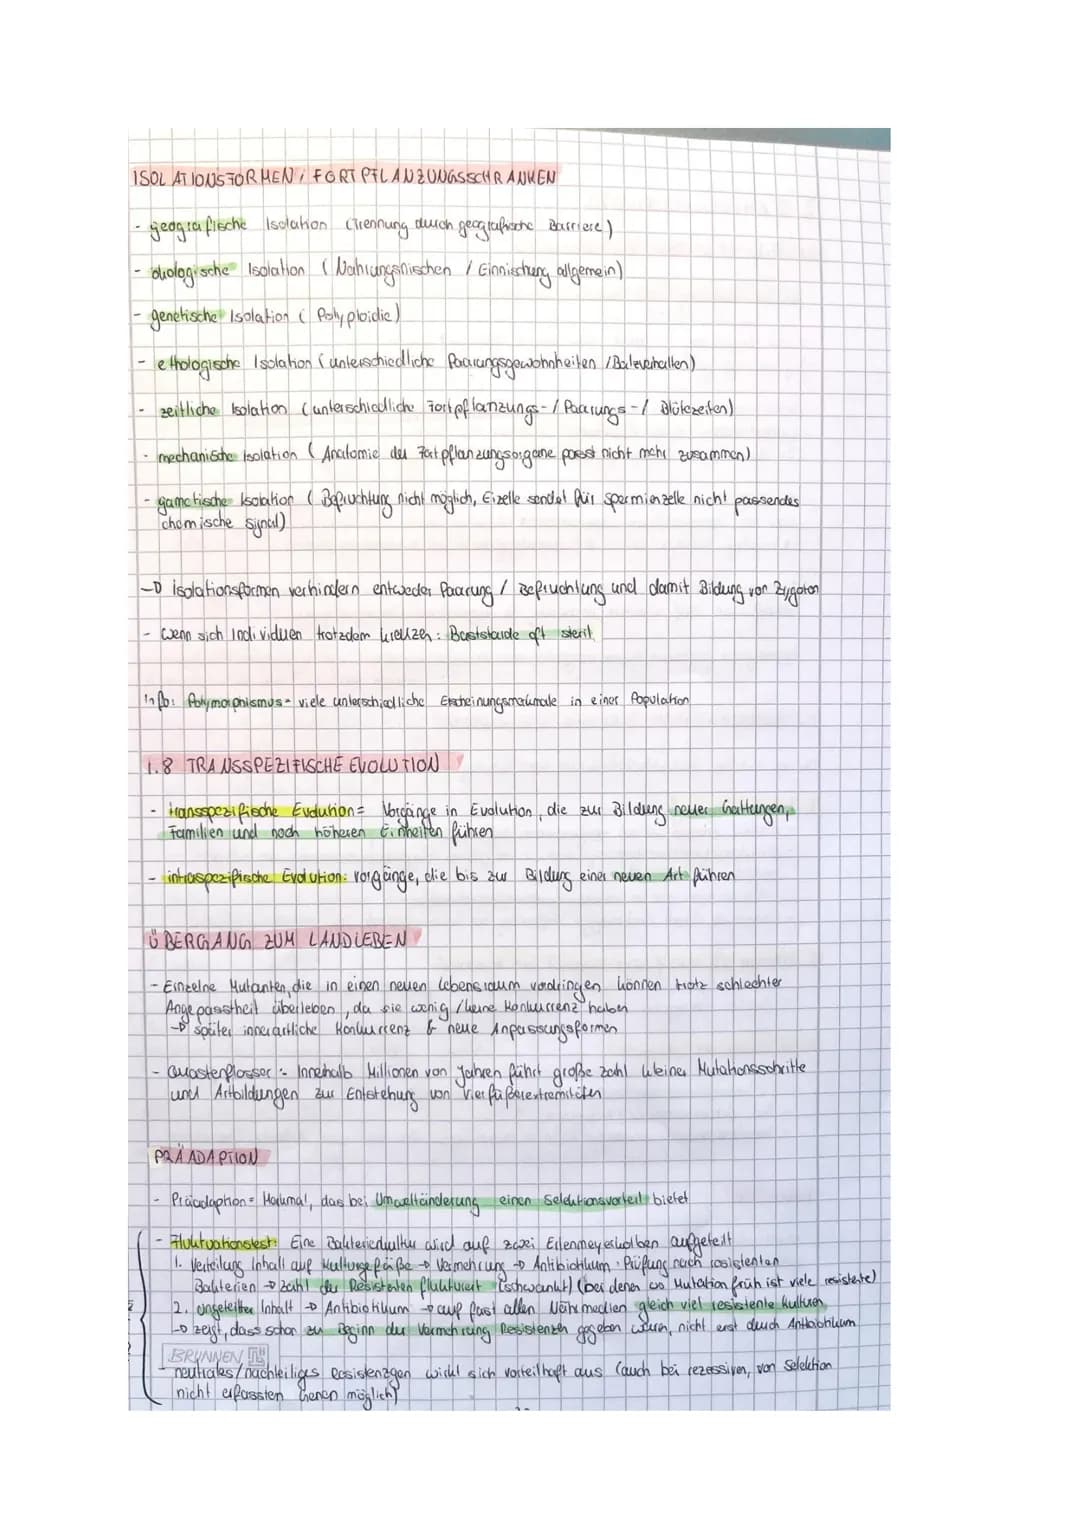 ISOLATIONSFORMEN / FORTPFLANZUNGSSCHRANKEN
- geografische Isolation (Trennung durch geografische Barriere)
- ökologische Isolation (Nahrungsnischen / Einnischung allgemein)
- genetische Isolation (Polyploidie)
- ethologische Isolation (unterschiedliche Paarungsgewohnheiten / Balzverhalten)
- zeitliche Isolation (unterschiedliche Fortpflanzungs- / Paarungs- / Blütezeiten)
- mechanische Isolation (Anatomie der Fortpflanzungsorgane passt nicht mehr zusammen)
- gametische Isolation (Befruchtung nicht möglich, Eizelle sendet für Spermienzelle nicht passendes
chemische Signal)
→ Isolationsformen verhindern entweder Paarung / Befruchtung und damit Bildung von Zygoten
- Wenn sich Individuen trotzdem kreuzen: Baststarde oft steril
Info: Polymorphismus = viele unterschiedliche Erscheinungsmerkmale in einer Population
1.8 TRANSSPEZIFISCHE EVOLUTION
- transspezifische Evolution = Vorgänge in Evolution, die zur Bildung neuer Gattungen,
Familien und noch höheren Einheiten führen
- intraspezifische Evolution: Vorgänge, die bis zur Bildung einer neuen Art führen
ÜBERGANG ZUM LANDLEBEN
- Einzelne Mutanten, die in einen neuen Lebensraum vordringen können trotz schlechter
Angepasstheit überleben, da sie wenig / keine Konkurrenz haben
→ später innerartliche Konkurrenz & neue Anpassungsformen
- Quastenflosser: Innerhalb Millionen von Jahren führt große Zahl kleiner Mutationsschritte
und Artbildungen zur Entstehung von Vierfüßerextremitäten
PRÄADAPTION
- Präadaption = Merkmal, das bei Umweltänderung einen Selektionsvorteil bietet
- Fluktuationstest: Eine Bakterienkultur wird auf zwei Erlenmeyerkolben aufgeteilt
1. Verteilung Inhalt auf Kulturgefäße → Vermehrung → Antibiotikum: Prüfung nach resistenten
Bakterien → Zahl der Resistenten fluktuiert (schwankt) (bei denen wo Mutation früh ist viele resistente)
2. ungeteilter Inhalt → Antibiotikum → auf fast allen Nährmedien gleich viel resistente Kulturen
→ zeigt, dass schon zu Beginn der Vermehrung Resistenzen gegeben waren, nicht erst durch Antibiotikum
BRUNNEN
- neutrales/nachteiliges Resistenzgen wirkt sich vorteilhaft aus (auch bei rezessiven, von Selektion
nicht erfassten Genen möglich)